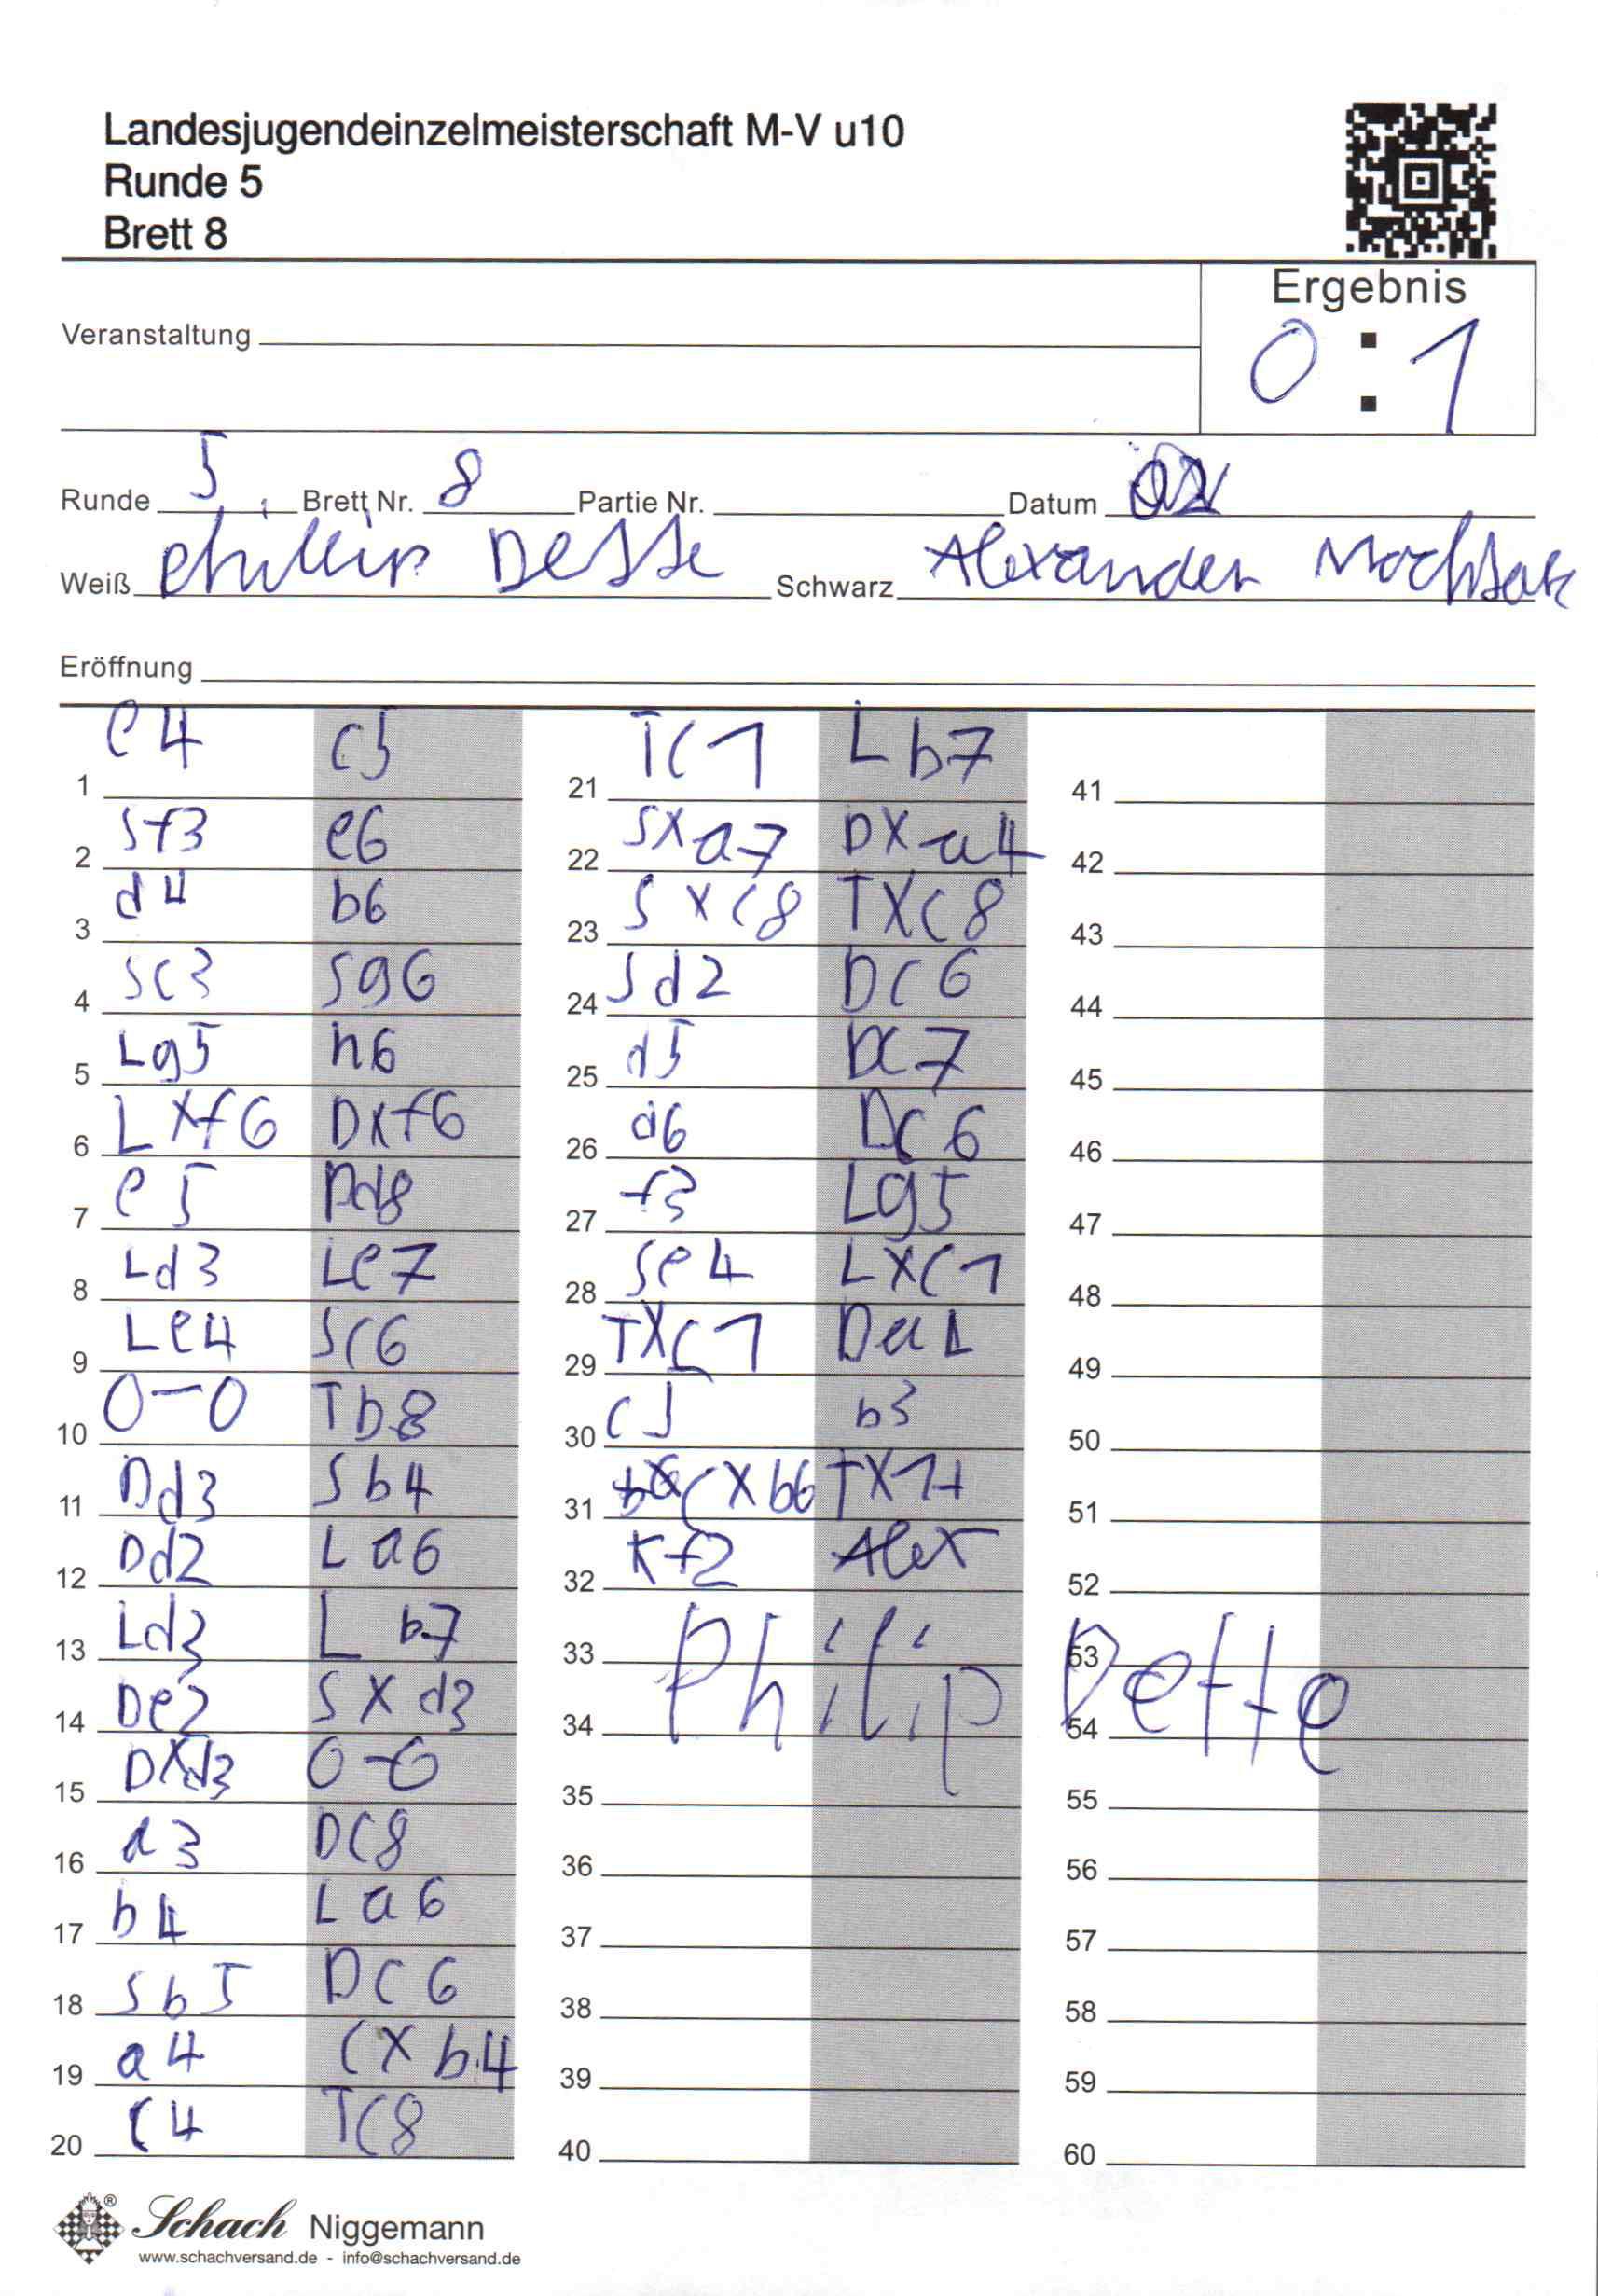 Landesjugendeinzelmeisterschaft M-V u10
Runde 5
Brett 8
Ergebnis
0 : 1
Veranstaltung
Runde 5 Brett Nr. 8 Partie Nr. Datum
Weiß Schwarz Alexander
Eröffnung
1 e4 c5
2 Sf3 e6
3 d4 b6
4 Sc3 Sg6
5 Lg5 h6
6 LXf6 DXf6
7 e5 Dd8
8 Ld3 Le7
9 Le4 Sc6
10 0-0 Tb8
11 Dd3 Sb4
12 Dd2 La6
13 Ld3 Lb7
14 De2 SXd3
15 DXd3 0-0
16 a3 DC8
17 b4 La6
18 Sb5 DC6
19 a4 CXb4
20 C4 TC8
21 TC1 Lb7
22 SXa7 DXa4
23 SXC8 TXC8
24 Sd2 DC6
25 d5 DC7
26 d6 DC6
27 f3 Lg5
28 Se4 LXC1
29 TXC1 Da4
30 C5 b3
31 CXb6 TX1+
32 Kf2 Alex
33
34
Philip Dette
35
36
37
38
39
40
41
42
43
44
45
46
47
48
49
50
51
52
53
54
55
56
57
58
59
60
Schach Niggemann
www.schachversand.de - info@schachversand.de